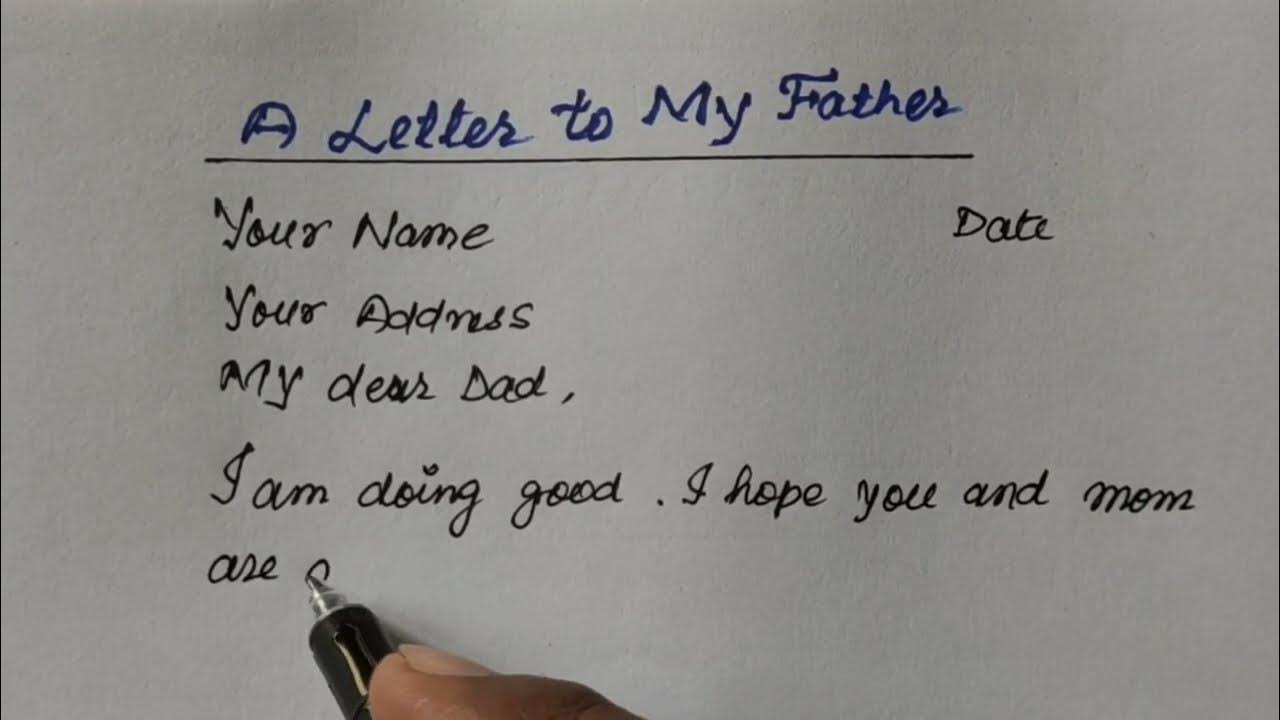 A Letter to My Father
Your Name Date
Your Address
My dear Dad,
I am doing good. I hope you and mom
are